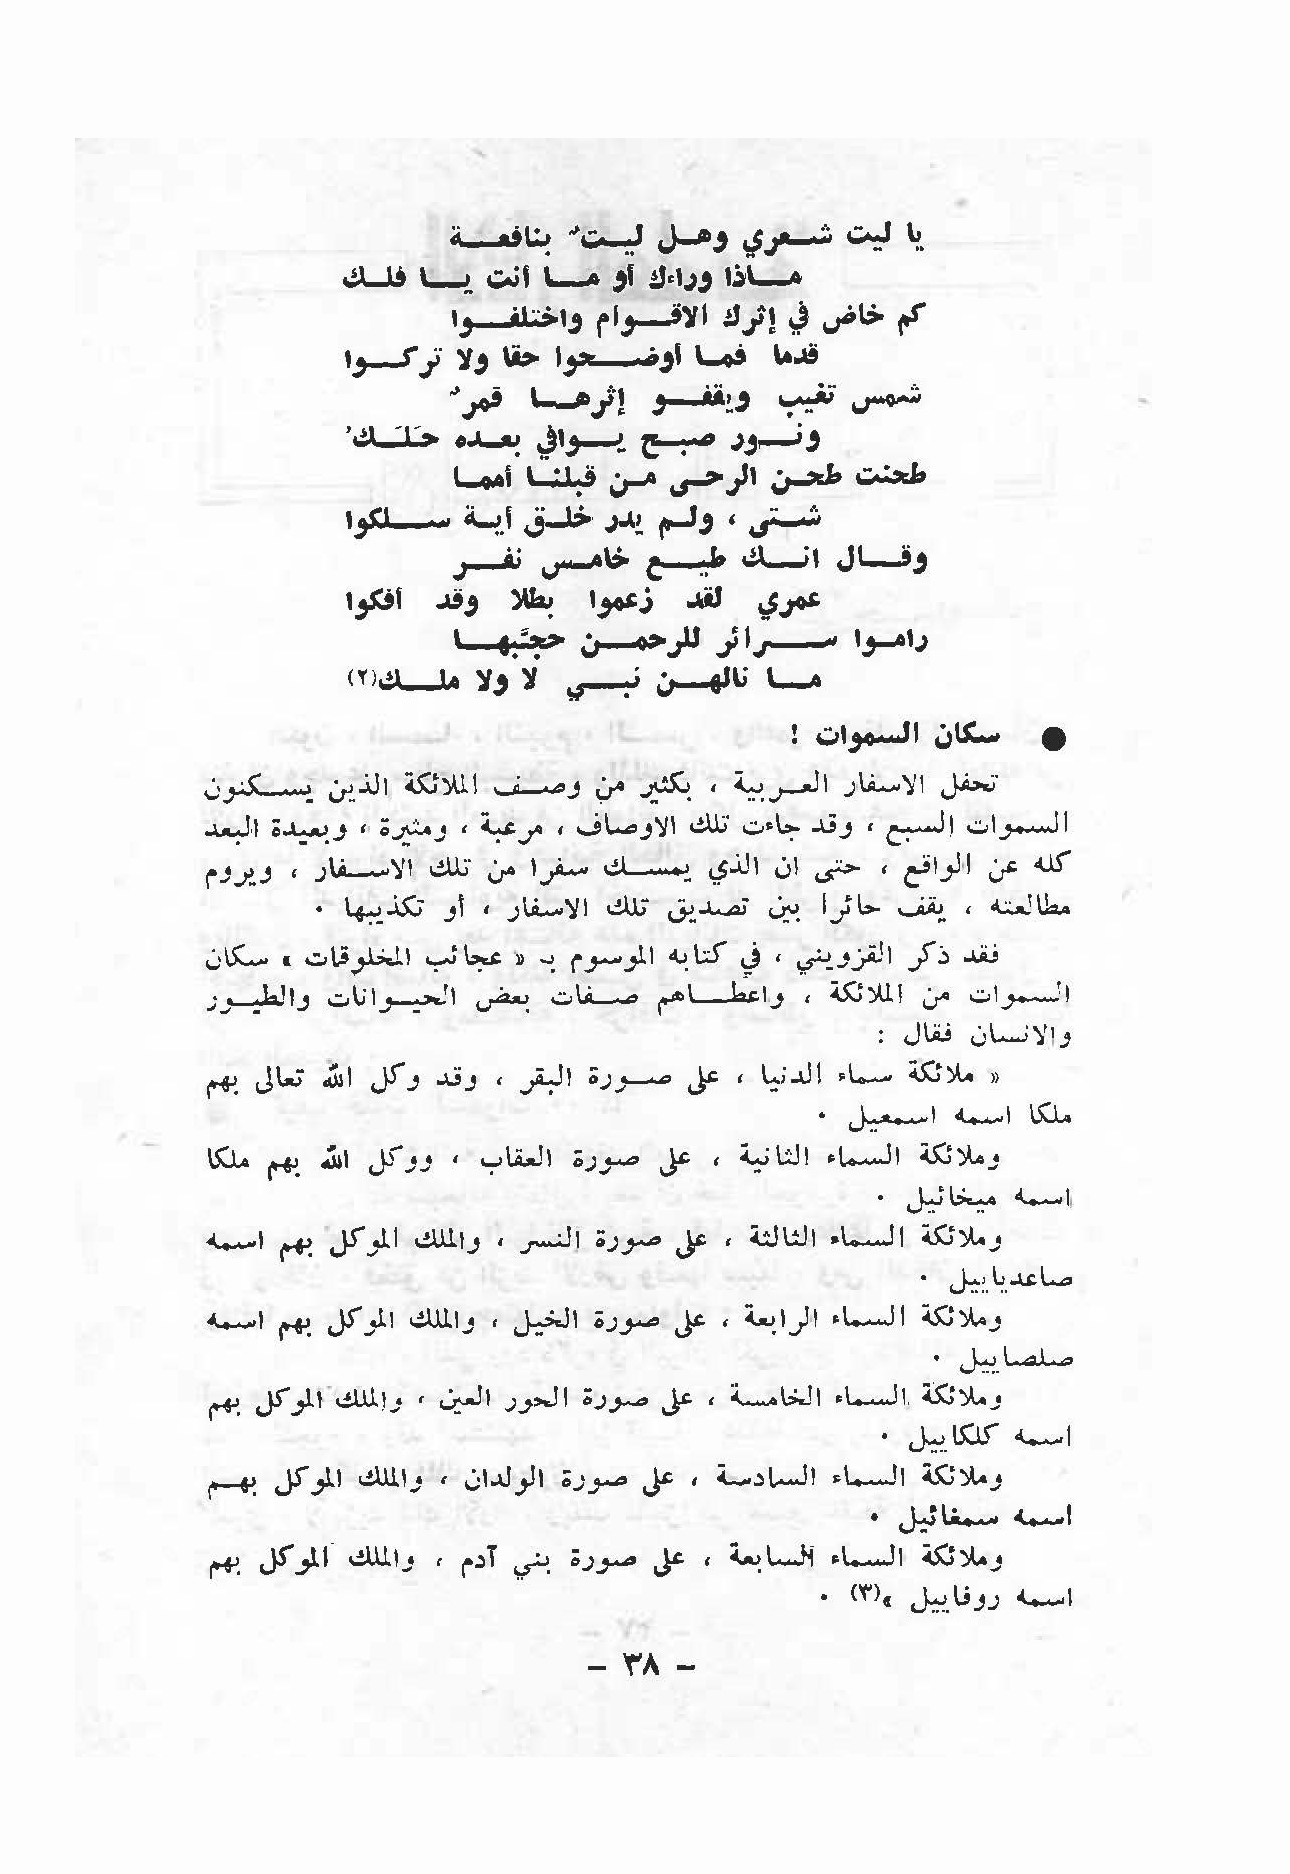 يا ليت شعري وهل ليتٌ بنافعة
ماذا وراءك أو ما أنت يا فلك
كم خاض في إثرك الاقوام واختلفوا
قدما فما أوضحوا حقا ولا تركوا
شمس تغيب ويقفو إثرها قمرٌ
ونور صبح يوافي بعده حَلَكُ
طحنت طحن الرحى من قبلنا أمما
شتى ، ولم يدر خلق أية سلكوا
وقال انك طيع خامس نفر
عمري لقد زعموا بطلا وقد أفكوا
راموا سرائر للرحمن حجَّبها
ما نالهن نبي لا ولا ملك(٢)
● سكان السموات !
تحفل الاسفار العربية ، بكثير من وصف الملائكة الذين يسكنون
السموات السبع ، وقد جاءت تلك الاوصاف ، مرعبة ، ومثيرة ، وبعيدة البعد
كله عن الواقع ، حتى ان الذي يمسك سفرا من تلك الاسفار ، ويروم
مطالعته ، يقف حائرا بين تصديق تلك الاسفار ، أو تكذيبها .
فقد ذكر القزويني ، في كتابه الموسوم بـ « عجائب المخلوقات » سكان
السموات من الملائكة ، واعطاهم صفات بعض الحيوانات والطيور
والانسان فقال :
« ملائكة سماء الدنيا ، على صورة البقر ، وقد وكل الله تعالى بهم
ملكا اسمه اسمعيل .
وملائكة السماء الثانية ، على صورة العقاب ، ووكل الله بهم ملكا
اسمه ميخائيل .
وملائكة السماء الثالثة ، على صورة النسر ، والملك الموكل بهم اسمه
صاعدياييل .
وملائكة السماء الرابعة ، على صورة الخيل ، والملك الموكل بهم اسمه
صلصاييل .
وملائكة السماء الخامسة ، على صورة الحور العين ، والملك الموكل بهم
اسمه كلكاييل .
وملائكة السماء السادسة ، على صورة الولدان ، والملك الموكل بهم
اسمه سمغائيل .
وملائكة السماء السابعة ، على صورة بني آدم ، والملك الموكل بهم
اسمه روفاييل »(٣) .
– ٣٨ –